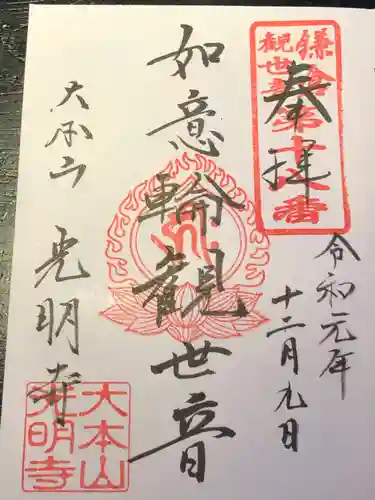 奉拝
鎌倉
観世音第十八番
令和元年
十二月九日
如意輪観世音
大本山
光明寺
大本山
光明寺